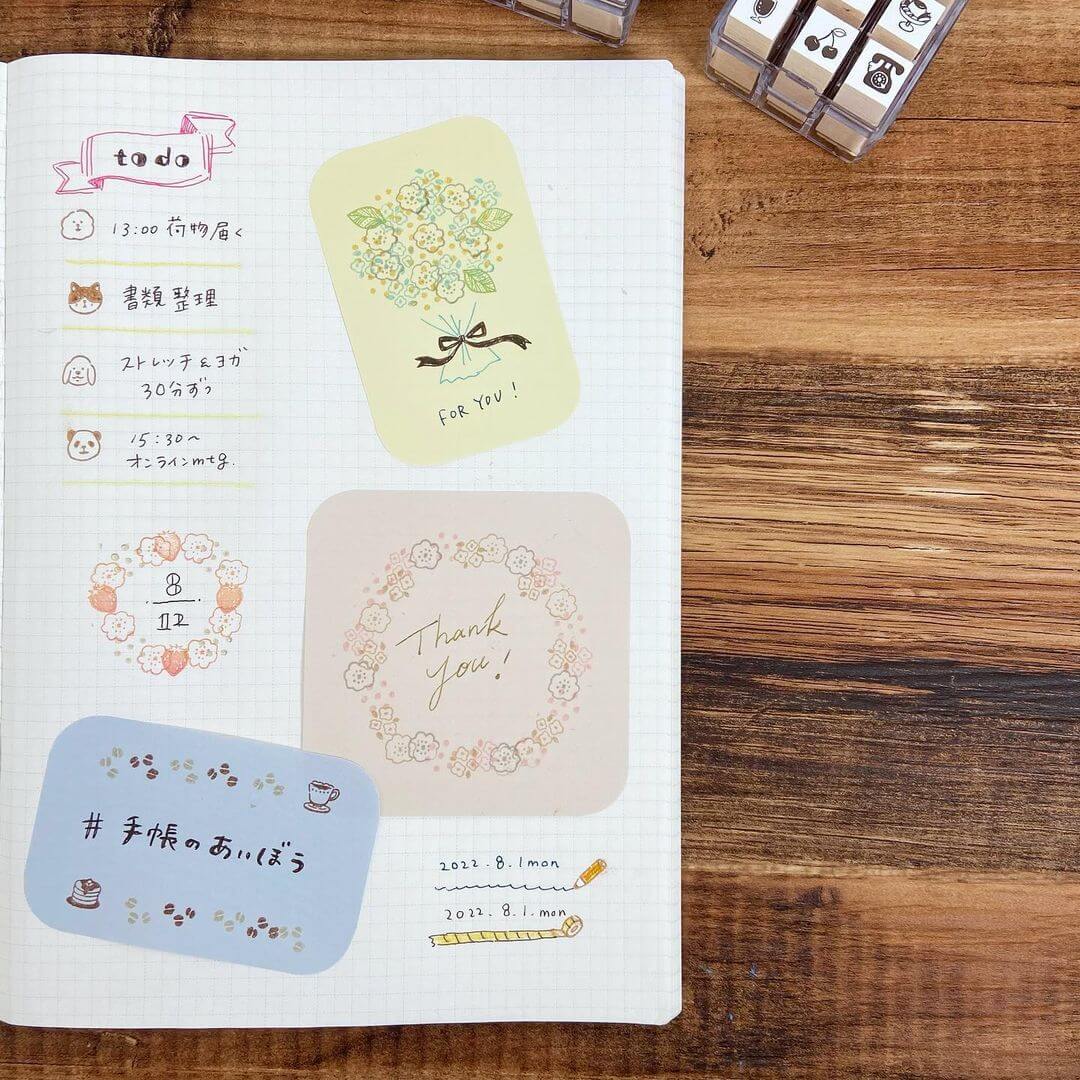 to do
13:00 荷物届く
書類整理
ストレッチ&ヨガ
30分ずつ
15:30〜
オンラインmtg.
FOR YOU!
8
12
Thank
you!
# 手帳のあいぼう
2022.8.1mon
2022.8.1.mon